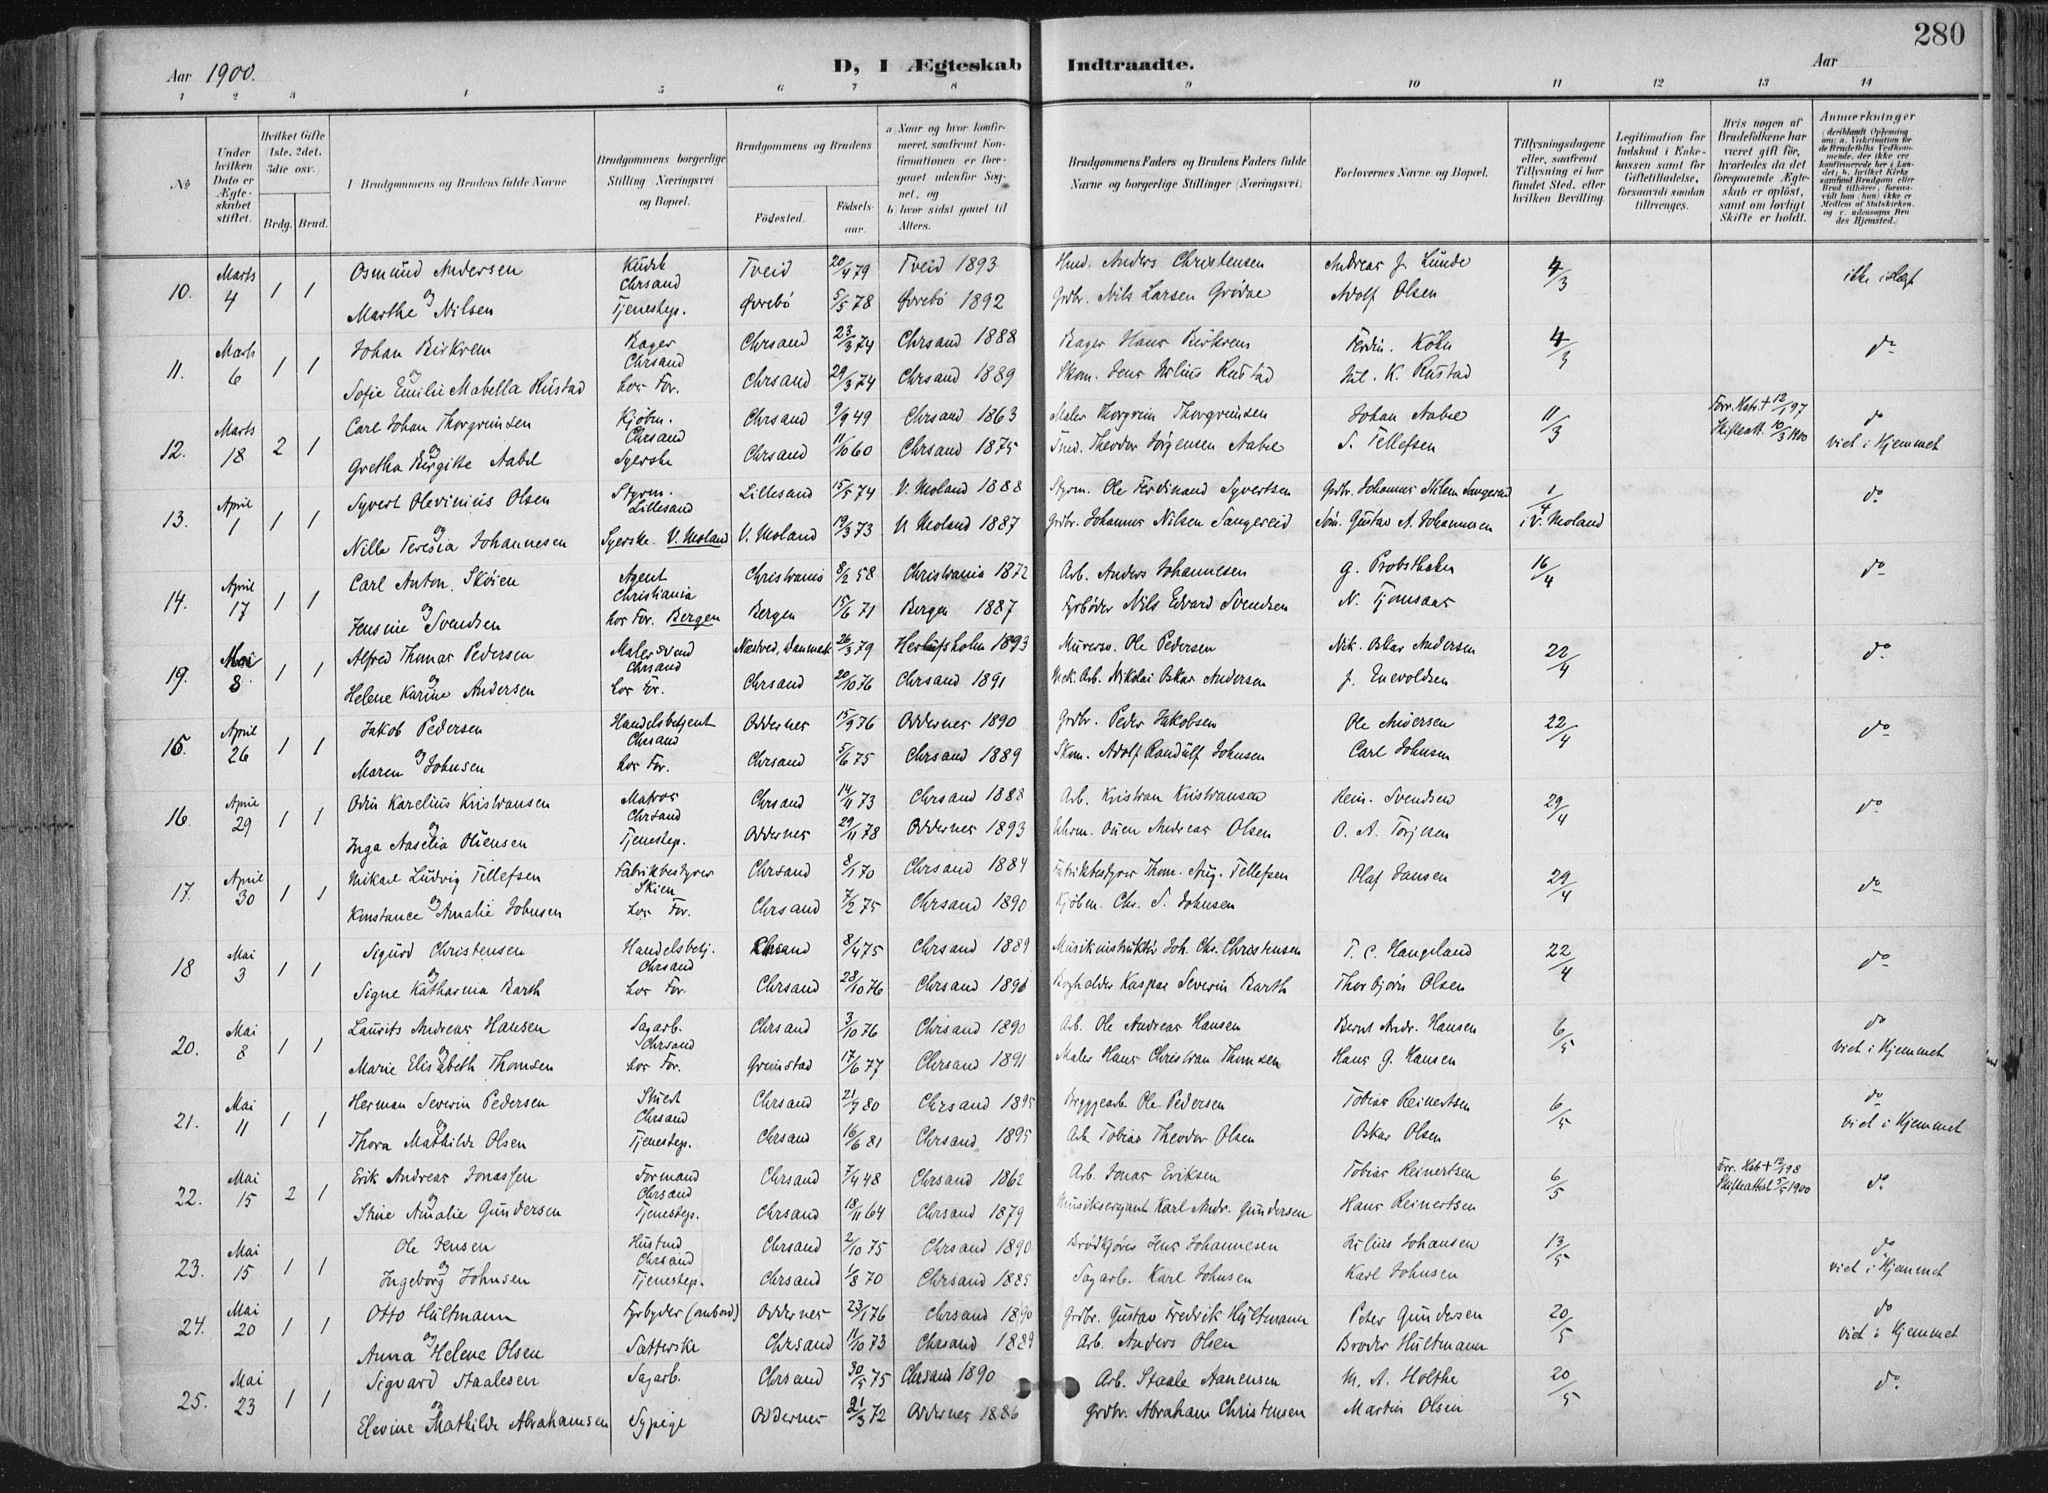 280
Aar 1900. D, I Ægteskab Indtraadte. Aar
1 2 3 4 5 6 7 8 9 10 11 12 13 14
№
Under hvilken Dato er Ægteskabet stiftet.
Hvilket Gifte (1ste, 2det, 3die osv.)
Brdg. Brud.
1 Brudgommens og Brudens fulde Navne
Brudgommens borgerlige Stilling (Næringsvei) og Bopæl.
Brudgommens og Brudens
Fødested. Fødselsaar.
a) Naar og hvor konfirmeret, saafremt Konfirmationen er foregaaet udenfor Sognet, og
b) hvor sidst gaaet til Alters.
Brudgommens Faders og Brudens Faders fulde Navne og borgerlige Stillinger (Næringsvei)
Forlovernes Navne og Bopæl.
Tillysningsdagene eller, saafremt Tillysning ei har fundet Sted, efter hvilken Bevilling.
Legitimation for Indskud i Enkekassen samt for Giftetilladelse, forsaavidt saadan tiltrænges.
Hvis nogen af Brudefolkene har været gift før, hvorledes da det foregaaende Ægteskab er opløst, samt om lovligt Skifte er holdt.
Anmærkninger
10. Marts 4 1 1 Osmund Andersen Kudsk Chrsand Tveid 20/4 79 Tveid 1893 Anders Christensen Andreas J. Lunde 4/3 ikke i Slægt
og Marthe Nilsen Tjenestep. Øvrebø 5/5 78 Øvrebø 1892 Grdbr. Nils Larsen Grødae Adolf Olsen
11. Marts 6 1 1 Johan Birkrem Bager Chrsand Chrsand 23/3 74 Chrsand 1888 Bager Hans Birkrem Ferdin. Köhn 4/3 do
og Sofie Emilie Mabella Rustad hos For. Chrsand 29/3 74 Chrsand 1889 Skom. Jens Julius Rustad Jul. K. Rustad
12. Marts 18 2 1 Carl Johan Thorgrimsen Kjøbm. Chrsand Chrsand 9/9 49 Chrsand 1863 Maler Thorgrim Thorgrimsen Johan Aabel 11/3 Forr. Hstr. + 12/1 97 do
og Gretha Birgitte Aabel Syerske Chrsand 11/10 60 Chrsand 1875 Snd. Theodor Jørgensen Aabel S. Tellefsen Skifteatt. 10/3 1900 viet i Hjemmet
13. April 1 1 1 Syvert Olevinius Olsen Styrm. Lillesand Lillesand 15/5 74 V. Moland 1888 Styrm. Ole Ferdinand Syvertsen Grdbr. Johannes Nilsen Sangereid 1/4 do
og Nille Teresia Johannesen Syerske. V. Moland V. Moland 19/3 73 V. Moland 1887 Grdbr. Johannes Nilsen Sangereid Søm. Gustav A. Johannesen i V. Moland
14. April 17 1 1 Carl Anton Skøien Agent Christiania Christiania 8/2 58 Christiania 1872 Arb. Anders Johannesen G. Probsthahn 16/4 do
og Jensine Svendsen hos For. Bergen Bergen 15/6 71 Bergen 1887 Fyrbøder Nils Edvard Svendsen N. Tjomsaas
19. Mai 8 1 1 Alfred Thomas Pedersen Malersvend Chrsand Næstved, Danmark 26/3 79 Herlufsholm 1893 Murersv. Ole Pedersen Nik. Oskar Andersen 22/4 do
og Helene Karine Andersen hos For. Chrsand 20/10 76 Chrsand 1891 Mek. Arb. Nikolai Oskar Andersen J. Enevoldsen
15. April 26 1 1 Jakob Pedersen Handelsbetjent Chrsand Oddernes 15/9 76 Oddernes 1890 Grdbr. Peder Jakobsen Ole Andersen 22/4 do
og Maren Johnsen hos For. Chrsand 5/6 75 Chrsand 1889 Skom. Adolf Randulf Johnsen Carl Johnsen
16. April 29 1 1 Odin Karelius Kristiansen Matros Chrsand Chrsand 14/11 73 Chrsand 1888 Arb. Kristian Kristiansen Rein. Svendsen 29/4 do
og Inga Aaselia Olsensen Tjenestep. Oddernes 29/11 78 Oddernes 1893 Ouen Andreas Olsen O. A. Torjesen
17. April 30 1 1 Mikael Ludvig Tellefsen Fabrikbestyrer Skien Chrsand 8/1 70 Chrsand 1884 Fabrikbestyrer Thom. Aug. Tellefsen Olaf Jansen 29/4 do
og Konstance Amalie Johnsen hos For. Chrsand 7/2 75 Chrsand 1890 Kjøbm. Chr. S. Johnsen
18 Mai 3 1 1 Sigurd Christensen Handelsbetj. Chrsand Chrsand 8/4 75 Chrsand 1889 Musikinstruktør Joh. Chr. Christensen T. C. Haugeland 22/4 do
og Signe Katharina Barth hos For. Chrsand 28/10 76 Chrsand 1896 Bogholder Kaspar Severin Barth Thorbjørn Olsen
20. Mai 8 1 1 Laurits Andreas Hansen Sagarb. Chrsand Chrsand 3/10 76 Chrsand 1890 Arb. Ole Andreas Hansen Bernt Andr. Hansen 6/5 do
og Marie Elisabeth Thomsen hos For. Grimstad 17/6 77 Chrsand 1891 Maler Hans Christian Thomsen Hans G. Hansen viet i Hjemmet
21. Mai 11 1 1 Herman Severin Pedersen Chrsand Chrsand 21/7 80 Chrsand 1895 Bryggearb. Ole Pedersen Tobias Reinertsen 6/5 do
og Thora Mathilde Olsen Tjenestep. Chrsand 16/6 81 Chrsand 1895 Arb. Tobias Theodor Olsen Oskar Olsen viet i Hjemmet
22. Mai 15 2 1 Erik Andreas Jonassen Formand Chrsand Chrsand 7/4 48 Chrsand 1862 Arb. Jonas Eriksen Tobias Reinertsen 6/5 Forr. Hstr + 12/1 98 do
og Stine Amalie Gundersen Tjenestep. Chrsand 18/11 64 Chrsand 1879 Musiksergant Karl Andr. Gundersen Hans Reinertsen Skifteattest 5/5 1900
23. Mai 15 1 1 Ole Jensen Chrsand Chrsand 2/10 75 Chrsand 1890 Brødkjører Jens Johannesen Julius Johansen 13/5 do
og Ingeborg Johnsen Tjenestep. Chrsand 1/8 70 Chrsand 1885 Sagarb. Karl Johnsen Karl Johnsen viet i Hjemmet
24. Mai 20 1 1 Otto Hultmann Fyrbyder (ombord) Oddernes 23/1 76 Chrsand 1890 Grdbr. Gustav Fredrik Hultmann Peter Gundersen 20/5 do
og Anna Helene Olsen Chrsand 11/10 73 Chrsand 1889 Arb. Anders Olsen Broder Hultmann viet i Hjemmet
25. Mai 23 1 1 Sigvard Staalesen Sagarb. Chrsand 30/5 75 Chrsand 1890 Arb. Staale Aanensen M. A. Holthe 20/5 do
og Elevine Mathilde Abrahamsen Sypige Oddernes 21/3 72 Oddernes 1886 Grdbr. Abraham Christensen Martin Olsen